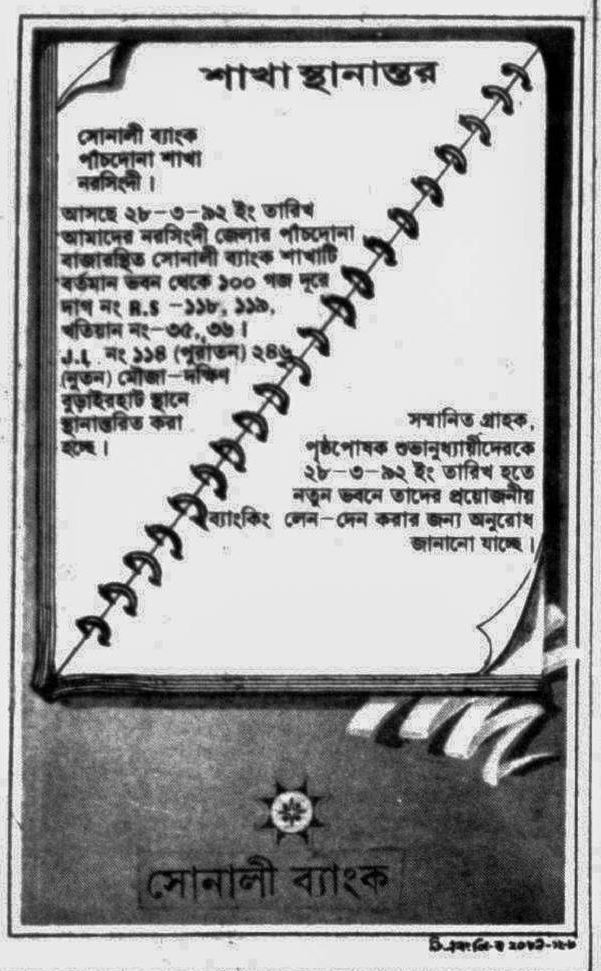 শাখা স্থানান্তর
সোনালী ব্যাংক
পাঁচদোনা শাখা
নরসিংদী।
আসছে ২৮-৩-৯২ ইং তারিখ
আমাদের নরসিংদী জেলার পাঁচদোনা
বাজারস্থিত সোনালী ব্যাংক শাখাটি
বর্তমান ভবন থেকে ১০০ গজ দূরে
দাগ নং R.S -১১৮, ১১৯,
খতিয়ান নং-৩৫, ৩৬।
J.L নং ১১৪ (পুরাতন) ২৪৬
(নুতন) মৌজা-দক্ষিণ
বুড়াইরহাট স্থানে
স্থানান্তরিত করা
হচ্ছে।
সম্মানিত গ্রাহক,
পৃষ্ঠপোষক শুভানুধ্যায়ীদেরকে
২৮-৩-৯২ ইং তারিখ হতে
নতুন ভবনে তাঁদের প্রয়োজনীয়
ব্যাংকিং লেন-দেন করার জন্য অনুরোধ
জানানো যাচ্ছে।
সোনালী ব্যাংক